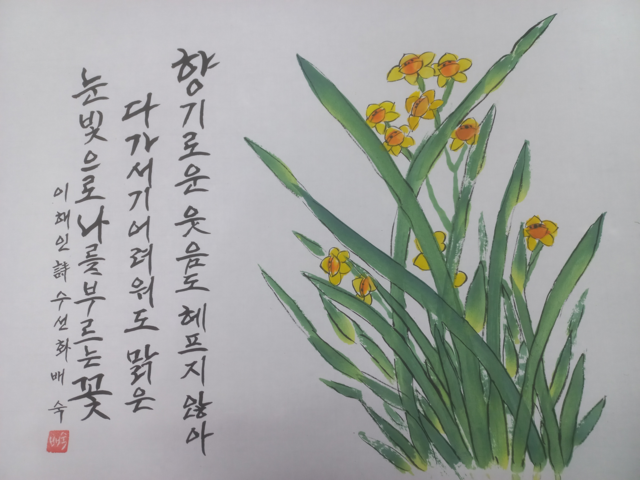 향기로운 웃음도 헤프지 않아
다가서기 어려워도 맑은
눈빛으로 나를 부르는 꽃
이해인 詩 수선화 배숙